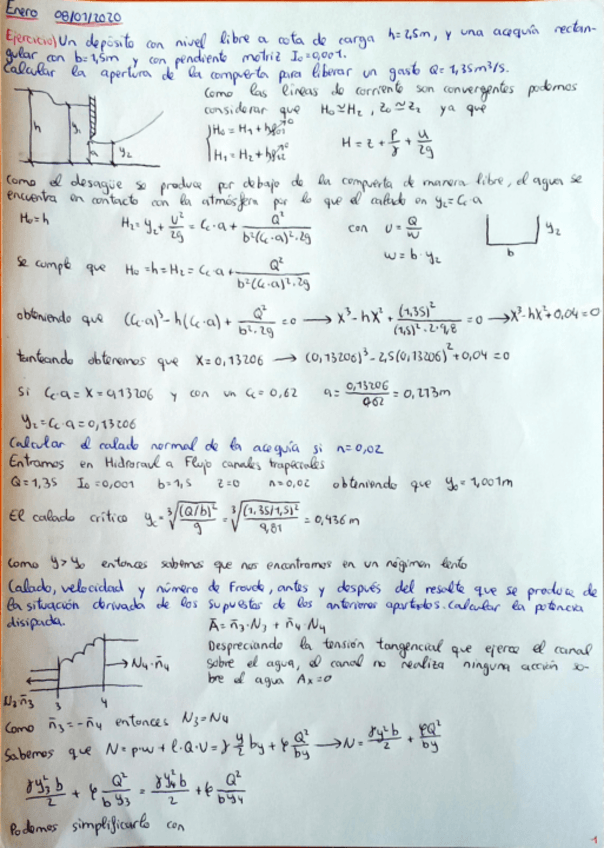 Enero 08/01/2020
Ejercicio) Un depósito con nivel libre a cota de carga h=2,5m, y una acequia rectan-
gular con b=1,5m y con pendiente motriz I₀=0,001.
Calcular la apertura de la compuerta para liberar un gasto Q=1,35m³/s.
Como las líneas de corriente son convergentes podemos
considerar que H₀≃H₂, z₀≃z₂ ya que
H₀ = H₁ + hp₀₁→0
H₁ = H₂ + hp₁₂→0
H = z + P/γ + u/2g
h y₁ a y₂
Como el desagüe se produce por debajo de la compuerta de manera libre, el agua se
encuentra en contacto con la atmósfera por lo que el calado en y₂=Cc·a
H₀=h H₂=y₂+U²/2g = Cc·a + Q²/(b²(Cc·a)²·2g) con U=Q/w
w=b·y₂
y₂
b
Se cumple que H₀=h=H₂=Cc·a+Q²/(b²(Cc·a)²·2g)
obteniendo que (Cc·a)³-h(Cc·a)+Q²/(b²·2g)=0 → X³-hX²+(1,35)²/((1,5)²·2·9,8)=0 → X³-hX²+0,04=0
tanteando obtenemos que X=0,13206 → (0,13206)³-2,5(0,13206)²+0,04=0
Si Cc·a=X=0,13206 y con un Cc=0,62 a=0,13206/0,62=0,213m
y₂=Cc·a=0,13206
Calcular el calado normal de la acequia si n=0,02
Entramos en Hidroraul a Flujo canales trapeciales
Q=1,35 I₀=0,001 b=1,5 z=0 n=0,02 obteniendo que y₀=1,001m
El calado crítico yc=∛((Q/b)²/g)=∛((1,35/1,5)²/9,81)=0,436m
Como y>y₀ entonces sabemos que nos encontramos en un régimen lento
Calado, velocidad y número de Froude, antes y después del resalte que se produce de
la situación derivada de los supuestos de los anteriores apartados. Calcular la potencia
disipada.
Ā=n̄₃·N₃+n̄₄·N₄
Despreciando la tensión tangencial que ejerce el canal
sobre el agua, el canal no realiza ninguna acción so-
bre el agua Ax=0
N₄·n̄₄
N₃n̄₃ 3 4
Como n̄₃=-n̄₄ entonces N₃=N₄
Sabemos que N=p·w+ρ·Q·U=γ y/2 by+ρ Q²/by → N=γy²b/2+ρQ²/by
γy₃²b/2+ρ Q²/by₃=γy₄²b/2+ρ Q²/by₄
Podemos simplificarlo con
1